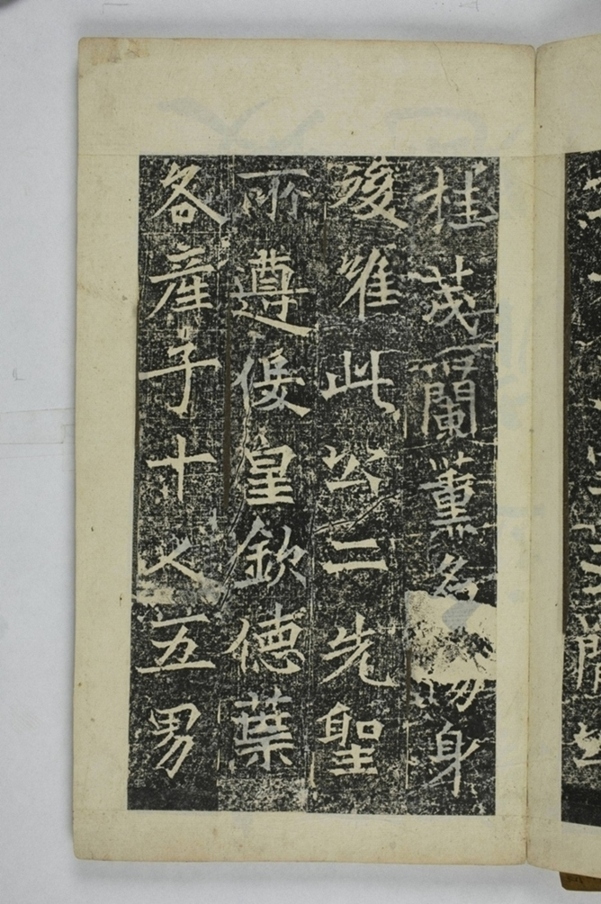 桂茂蘭薰名揚身
後唯此公二先聖
所遵皇欽德葉
各産子十人五男